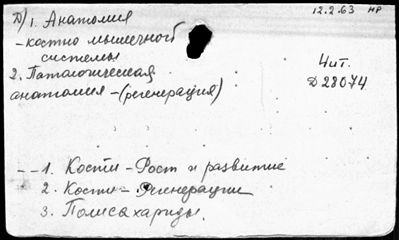 Д) 1. Анатомия
12.2.63 нр
- костно мышечной
системы
Чит.
2. Патологическая
Д28074
анатомия - (регенерация)
-- 1. Кости - Рост и развитие
2. Кости - Регенерация
3. Полисахариды.